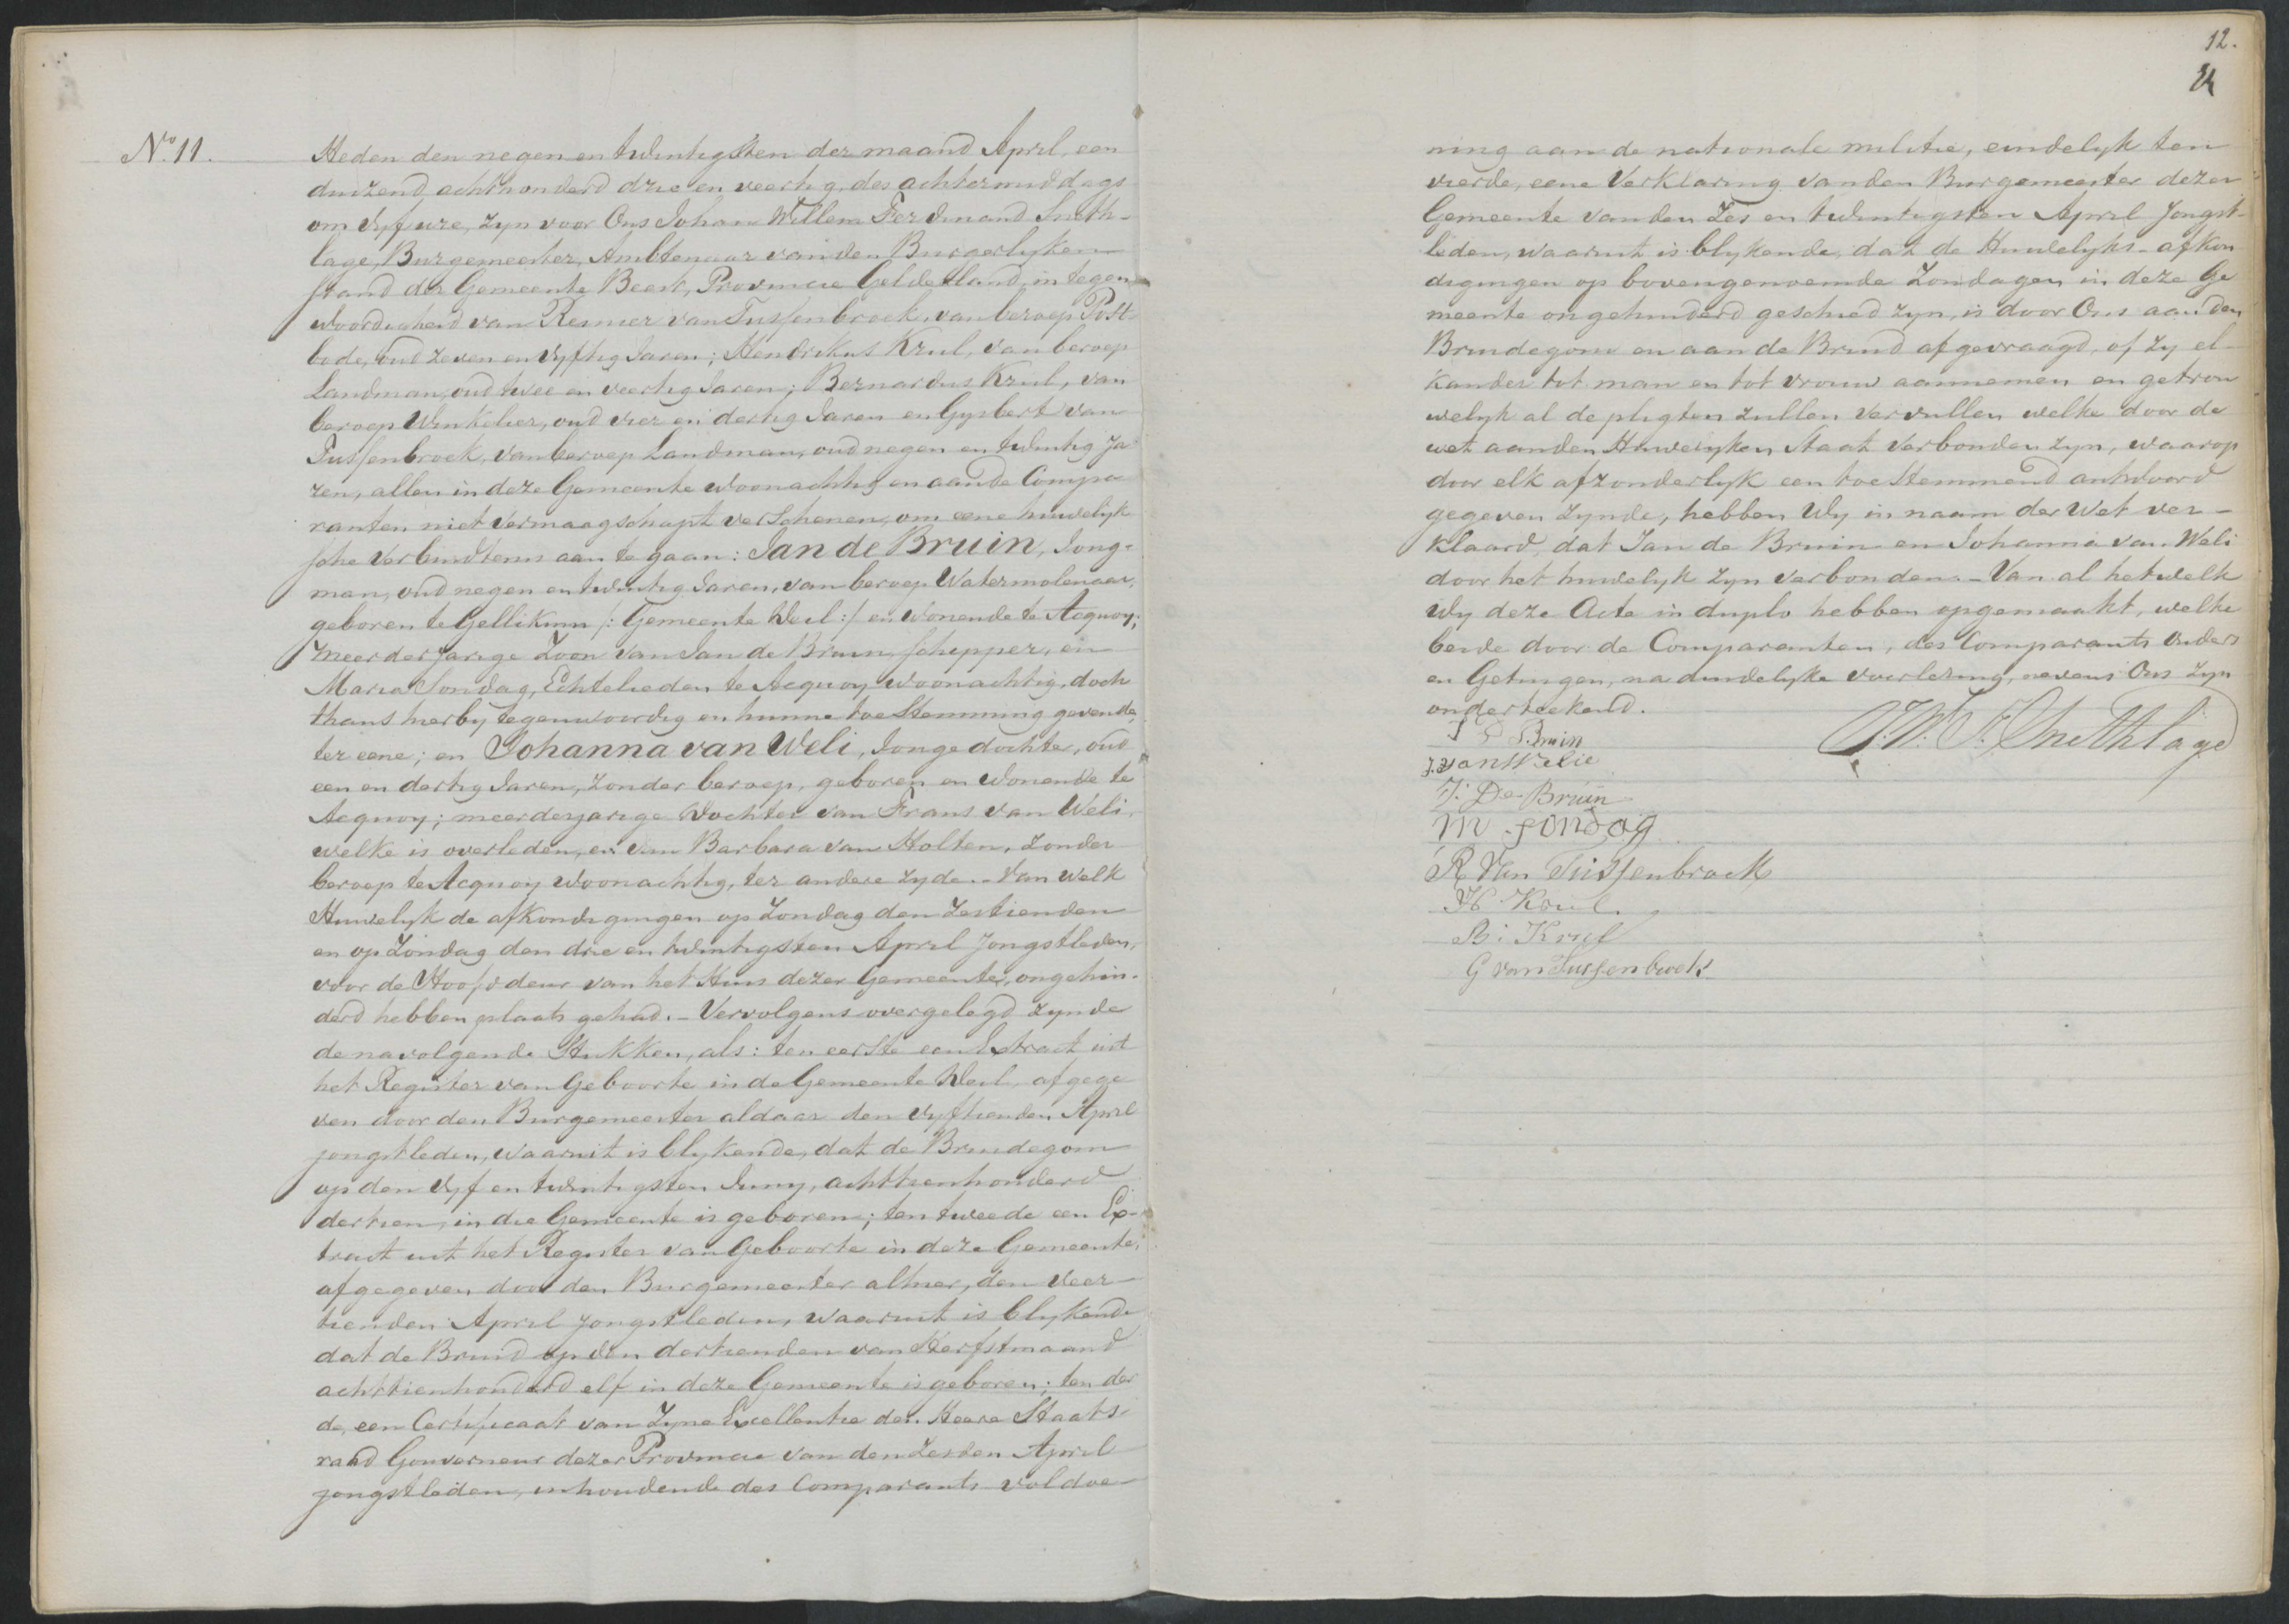 No. 11.
Heden den negen en twintigsten der maand April, een
duizend achthonderd drie en veertig, des achtermiddags
om vyf ure, zyn voor Ons Johan Willem Ferdinand Sneth-
lage, Burgemeester, Ambtenaar van den Burgerlyken
stand der Gemeente Beest, Provincie Gelderland, in tegen
woordigheid van Reinier van Tussenbroek, van beroep Post-
bode, oud zeven en vyftig Jaren; Hendrikus Krul, van beroep
Landman, oud twee en veertig Jaren; Bernardus Krul, van
beroep Winkelier, oud vier en dertig Jaren en Gysbert van
Tussenbroek, van beroep Landman, oud negen en twintig Ja-
ren, allen in deze Gemeente woonachtig en aan de Compa-
ranten niet vermaagschapt verschenen, om eene huwelyk
sche verbindtenis aan te gaan: Jan de Bruin, Jong-
man, oud negen en twintig Jaren, van beroep Watermolenaar,
geboren te Gellikum /: Gemeente Deil :/ en wonende te Acquoy;
meerderjarige Zoon van Jan de Bruin, schipper, en
Maria Sondag, Echtelieden te Acquoy woonachtig, doch
thans hierby tegenwoordig en hunne toestemming gevende,
ter eene; en Johanna van Weli, Jonge dochter, oud
een en dertig Jaren, zonder beroep, geboren en wonende te
Acquoy; meerderjarige Dochter van Frans van Weli,
welke is overleden, en van Barbara van Holten, zonder
beroep te Acquoy woonachtig, ter andere zyde. - Van welk
Huwelyk de afkondigingen op Zondag den Zestienden
en op Zondag den drie en twintigsten April jongstleden,
voor de Hoofddeur van het Huis dezer Gemeente, ongehin-
derd hebben plaats gehad. - Vervolgens overgelegd zynde
de navolgende Stukken, als: ten eerste een Extract uit
het Register van Geboorte in de Gemeente Deil, afgege
ven door den Burgemeester aldaar den vyftienden April
jongstleden, waaruit is blykende, dat de Bruidegom
op den vyf en twintigsten Juny, achttienhonderd
dertien, in die Gemeente is geboren; ten tweede een Ex-
tract uit het Register van Geboorte in deze Gemeente,
afgegeven door den Burgemeester alhier, den veer-
tienden April jongstleden, waaruit is blykende
dat de Bruid op den dertienden van Herfstmaand
achttienhonderd elf in deze Gemeente is geboren; ten der
de, een Certificaat van Zyne Excellentie den Heere Staats-
raad Gouverneur dezer Provincie van den zesden April
jongstleden, inhoudende des Comparants voldoe-
12.
ning aan de nationale militie, eindelyk ten
vierde, eene Verklaring van den Burgemeester dezer
Gemeente van den Zes en twintigsten April jongst-
leden, waaruit is blykende, dat de Huwelyks-afkon
digingen op bovengenoemde Zondagen in deze Ge
meente ongehinderd geschied zyn, is door Ons aan den
Bruidegom en aan de Bruid afgevraagd, of zy el-
kander tot man en tot vrouw aannemen en getrou
welyk al de pligten zullen vervullen welke door de
wet aan den Huwelyken Staat verbonden zyn, waarop
door elk afzonderlyk een toestemmend antwoord
gegeven zynde, hebben Wy in naam der Wet ver-
klaard, dat Jan de Bruin en Johanna van Weli
door het huwelyk zyn verbonden. - Van al hetwelk
Wy deze Acte in duplo hebben opgemaakt, welke
beide door de Comparanten, des Comparants Ouders
en Getuigen, na duidelyke voorlezing, nevens Ons zyn
onderteekend.
J D Bruin
J. W. F. Snethlage
J. van Welie
J: De Bruin
M Sondag
R Van Tussenbroek
H. Krul
B: Krul
G van Tussenbroek